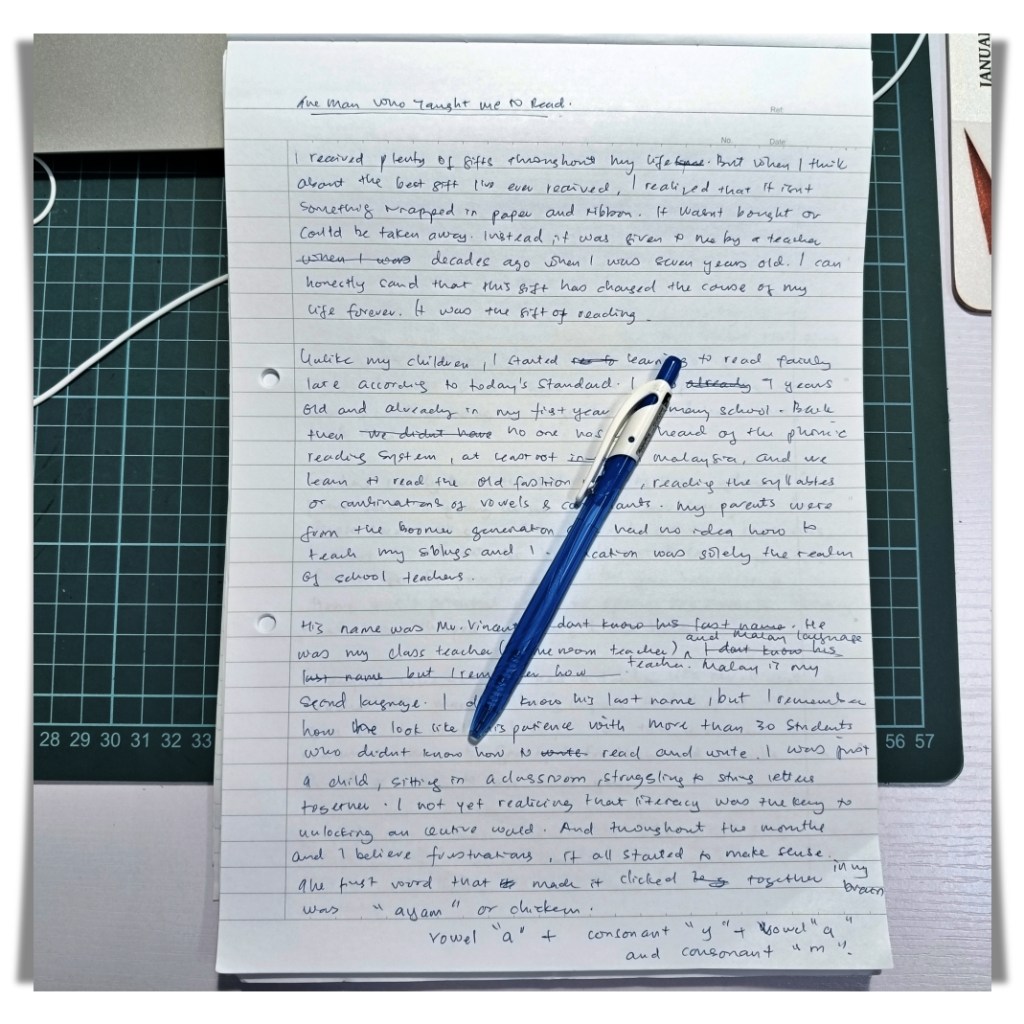 JANUAR
The Man Who Taught me to Read.
Ref.
No. Date
I received plenty of gifts throughout my life. But when I think
about the best gift I've ever received, I realized that it isnt
something wrapped in paper and ribbon. It wasnt bought or
could be taken away. Instead it was given to me by a teacher
when I was decades ago when I was seven years old. I can
honestly said that this gift has changed the couse of my
life forever. It was the gift of reading.
Unlike my children, I started learning to read fairly
late according to today's standard. I already 7 years
old and already in my first year school. Back
then we didnt have no one has heard of the phonic
reading system, at least not in Malaysia, and we
learn to read the old fashion, reading the syllables
or combinations of vowels & consonants. My parents were
from the boomer generation had no idea how to
teach my siblings and I. was solely the realm
of school teachers.
His name was Mr. Vincent dont know his last name. He
and Malay language
was my class teacher (homeroom teacher) I dont know his
last name but I remember how teacher. Malay is my
second language. I know his last name, but I remember
how he look like patience with more than 30 students
who didnt know how to write read and write. I was just
a child, sitting in a classroom, struggling to string letters
together. I not yet realizing that literacy was the key to
unlocking an entire world. And throughout the months
and I believe frustrations, it all started to make sense.
The first word that made it clicked together in my
brain
was "ayam" or chicken.
vowel "a" + consonant "y" + vowel "a"
and consonant "m".
28 29 30 31 32 33
56 57